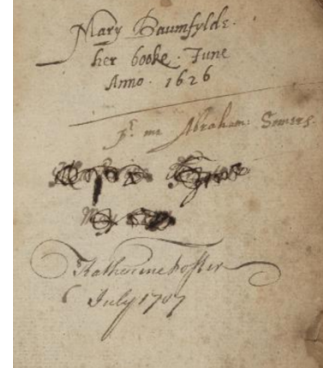 Mary Baumfylde.
her booke. June
Anno. 1626
me Abraham: Somers.
Katherine Foster
July 1707